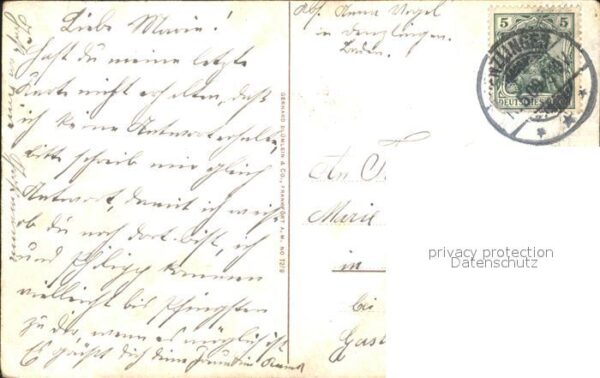 Liebe Marie!
Hast du meine letzte
Karte nicht erhalten, daß
ich keine Antwort erhalte,
bitte schreib mir gleich
Antwort, damit ich weiß
ob du noch dort bist, ich
und Philipp kommen
vielleicht bis Pfingsten
zu dir, wenn es möglich ist
Es grüßt dich deine Freundin
Abs. Anna Vogel
in Denzlingen
Baden.
GERHARD BLÜMLEIN & CO., FRANKFURT A. M. NO 72/9
5 5
DEUTSCHES REICH
DENZLINGEN
An
Marie
in
bei
Gast
privacy protection
Datenschutz